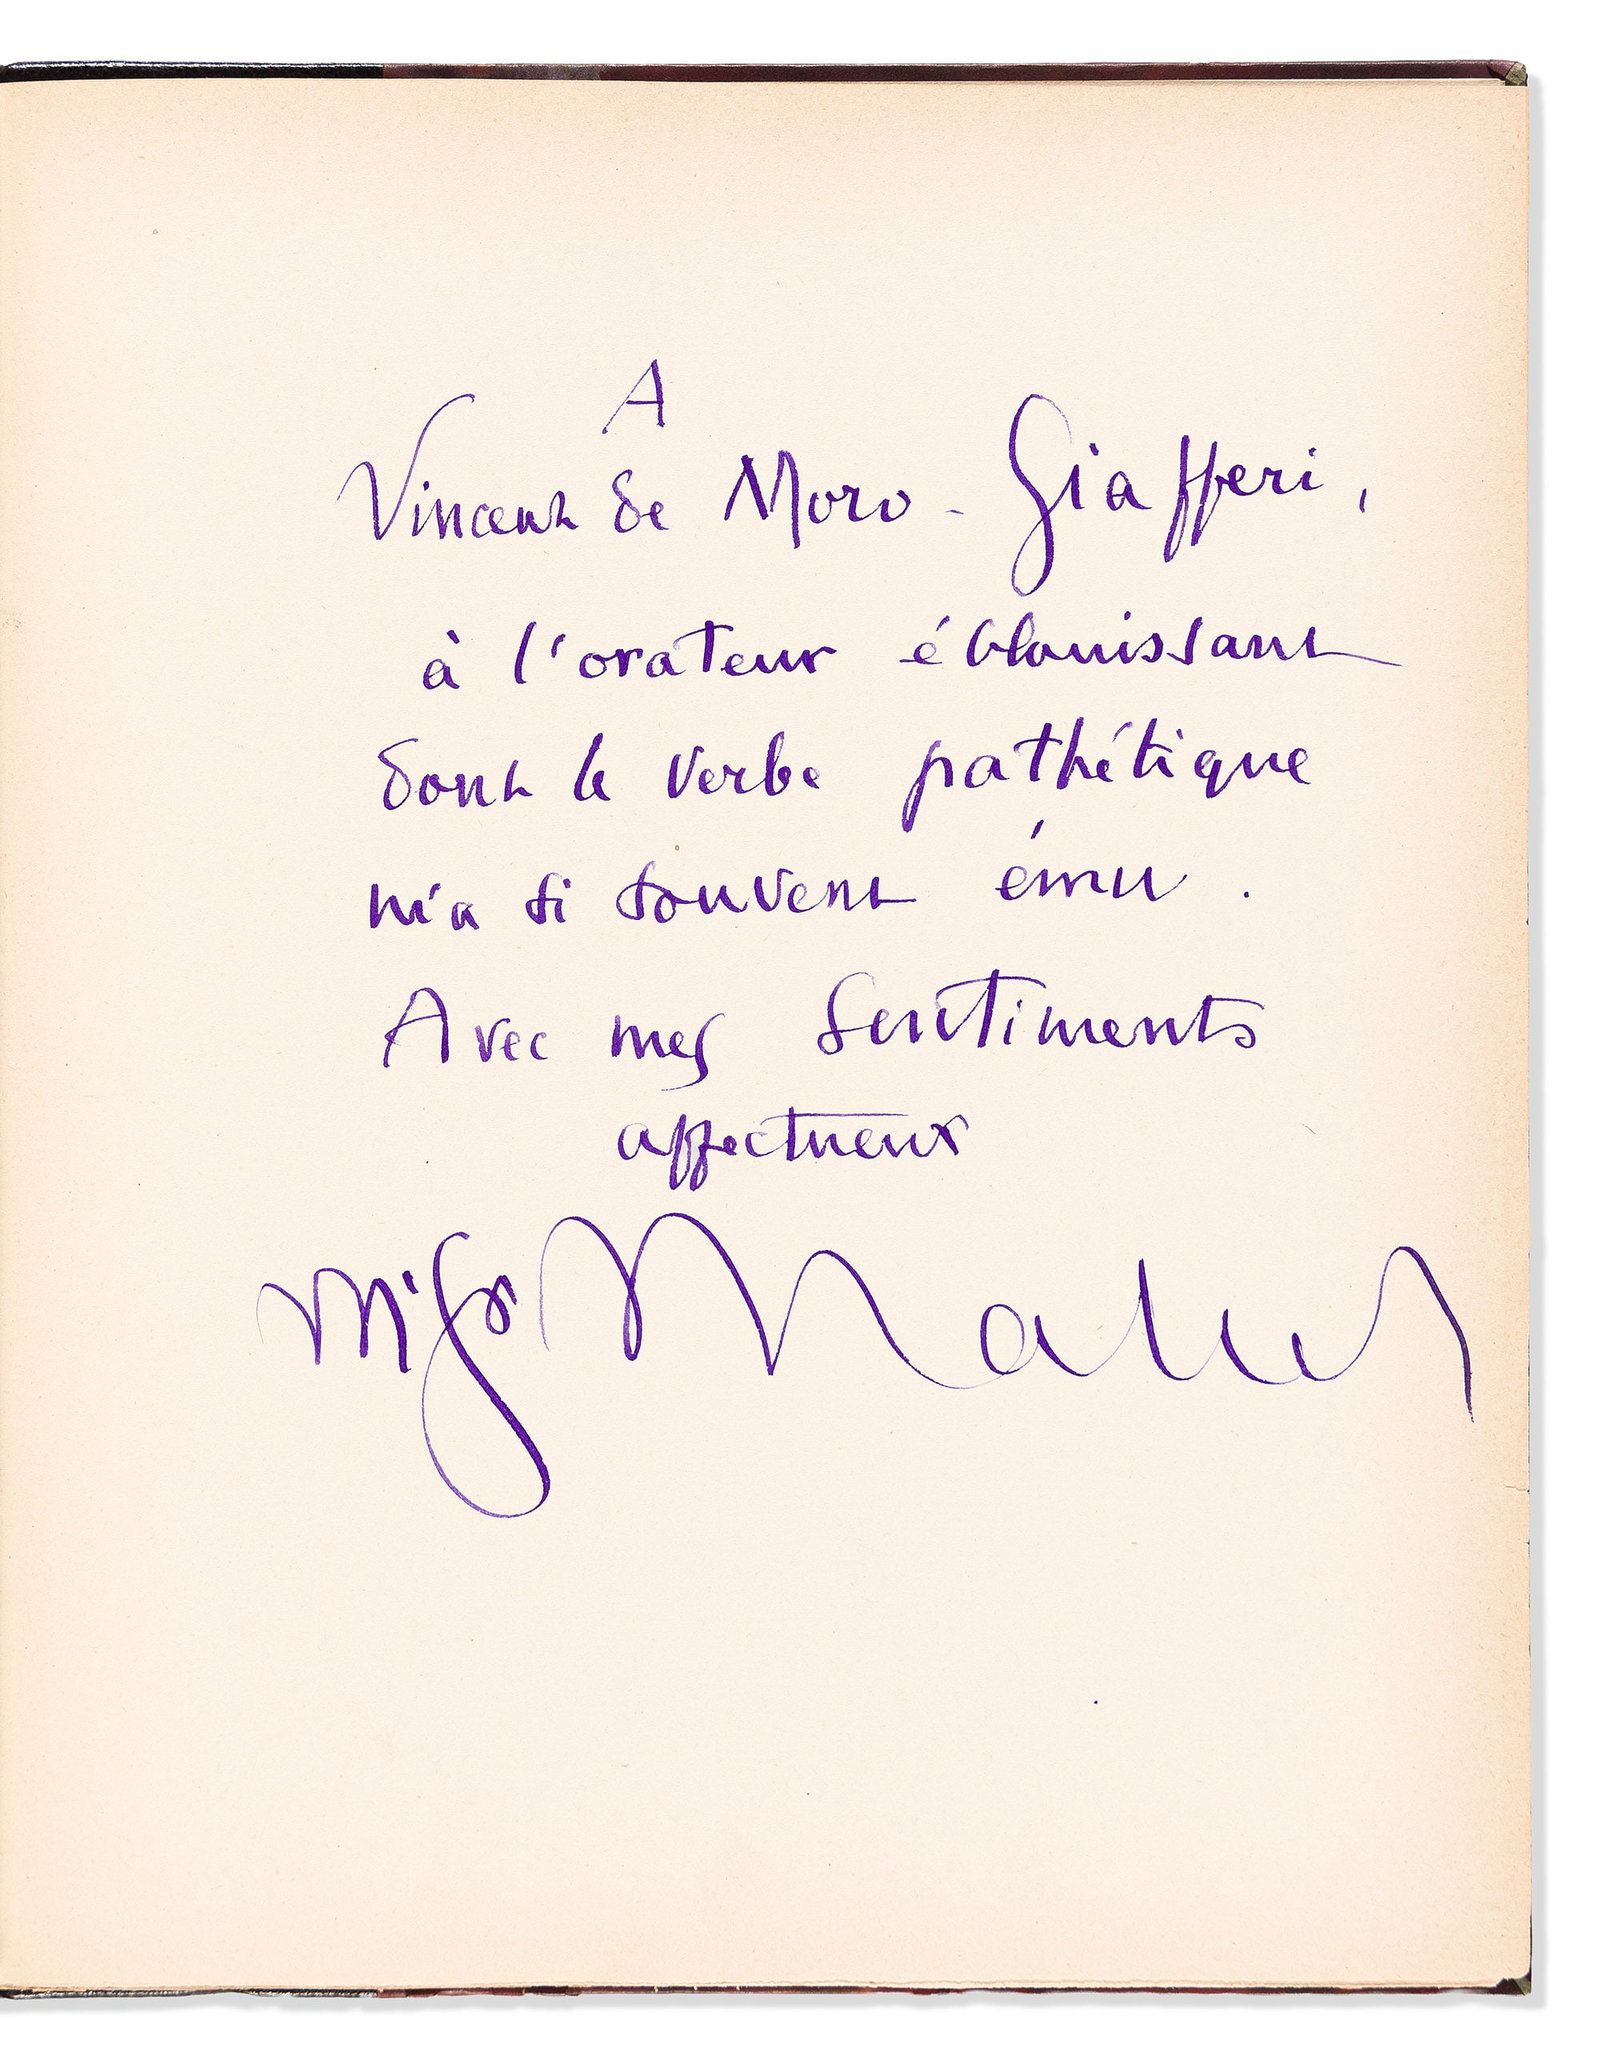 A
Vincent de Moro-Giafferi,
à l'orateur éblouissant
dont le verbe pathétique
m'a si souvent ému.
Avec mes sentiments
affectueux